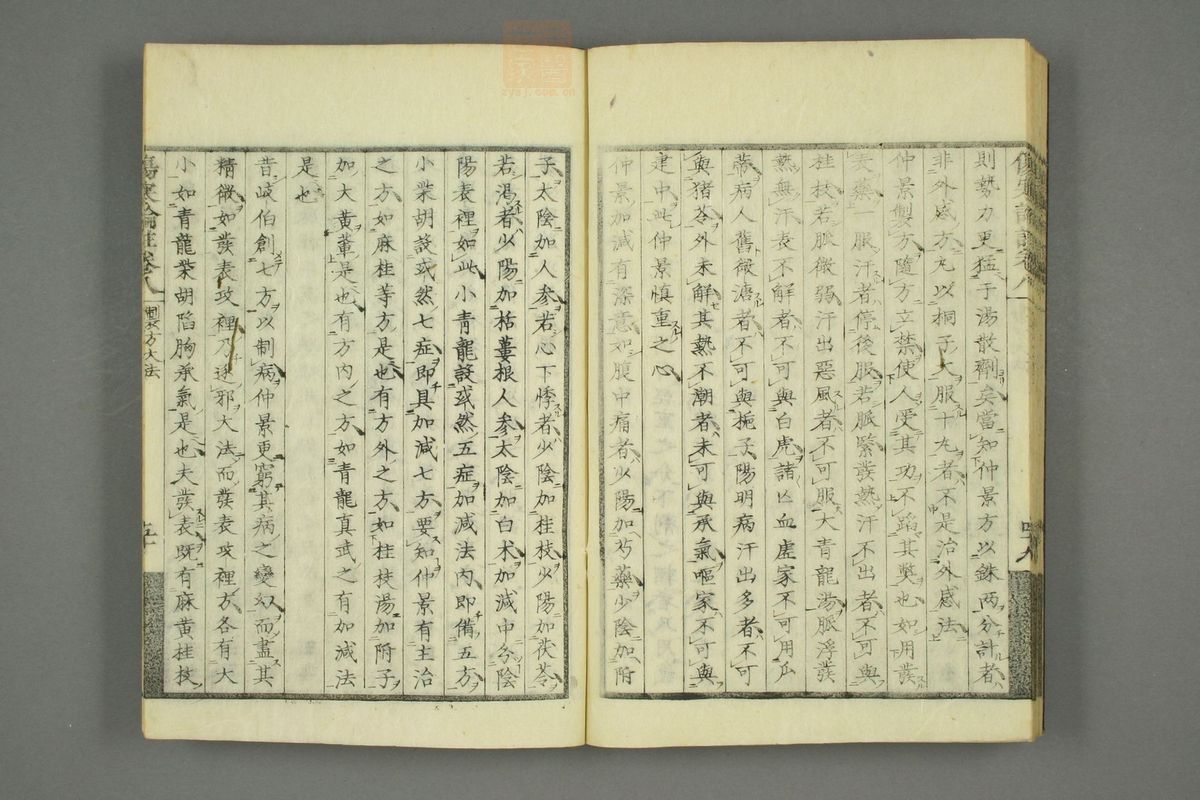 則勢力更猛于湯散劑矣當知仲景方以銖两分計者
非外感方丸以桐子大服十丸者不是治外感法
仲景製方隨方立禁使人受其功不蹈其獘也如用發
表藥一服汗者停後服若脈緊發熱汗不出者不可與
桂枝若脈微弱汗出惡風者不可服大青龍湯脈浮發
熱無汗表不解者不可與白虎諸亡血虛家不可用瓜
蒂病人舊微溏者不可與梔子陽明病汗出多者不可
與猪苓外未解其熱不潮者未可與承氣嘔家不可與
建中此仲景慎重之心
仲景加減有深意如腹中痛者少陽加芍藥少陰加附
子太陰加人参若心下悸者少陰加桂枝少陽加茯苓
若渴者少陽加栝蔞根人参太陰加白术加減中分陰
陽表裡如此小青龍設或然五症加減法内即備五方
小柴胡設或然七症即具加減七方要知仲景有主治
之方如麻桂等方是也有方外之方如桂枝湯加附子
加大黄軰是也有方内之方如青龍真武之有加減法
是也
昔岐伯創七方以制病仲景更窮其病之變幻而盡其
精微如發表攻裡乃逐邪大法而發表攻裡方各有大
小如青龍柴胡陷胸承氣是也夫發表既有麻黄桂枝
傷寒論註卷八
製方大法
五十